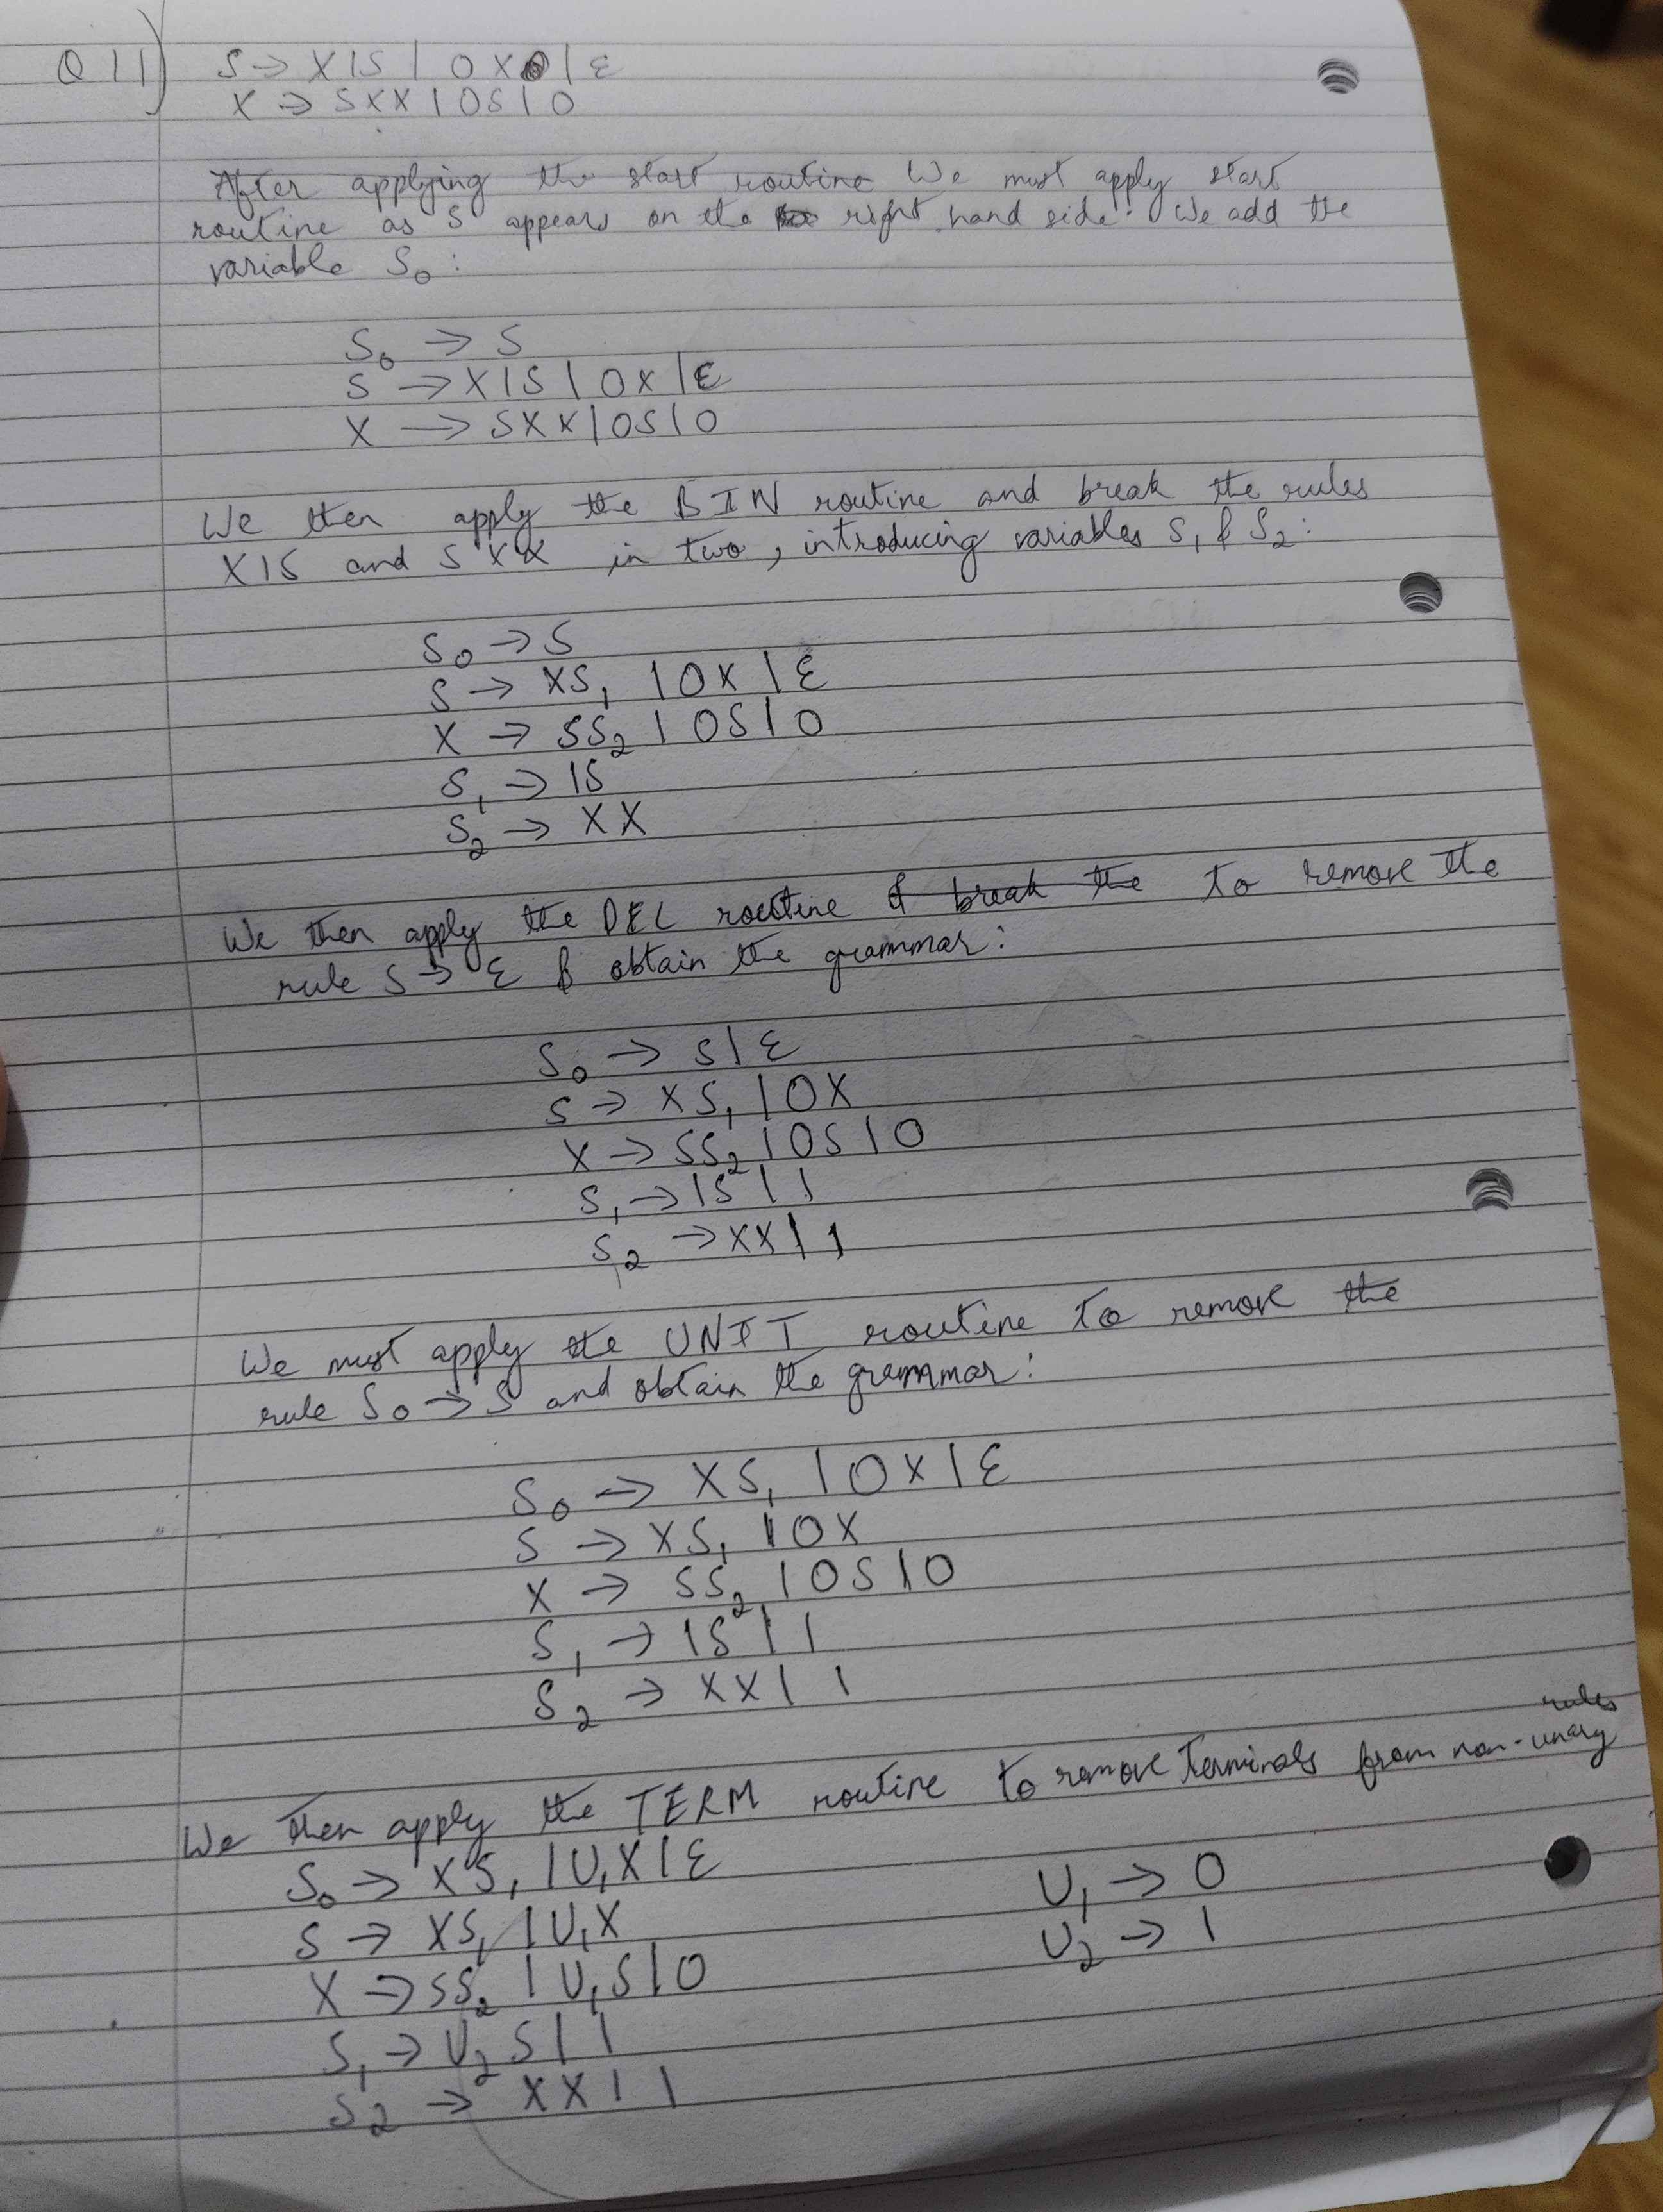 Q11) S → X1S | 0X | ε
X → SXX | 0S | 0
After applying the start routine We must apply start
routine as S appears on the right hand side. We add the
variable S₀:
S₀ → S
S → X1S | 0X | ε
X → SXX | 0S | 0
We then apply the BIN routine and break the rules
X1S and SXX in two, introducing variables S₁ & S₂:
S₀ → S
S → XS₁ | 0X | ε
X → SS₂ | 0S | 0
S₁ → 1S
S₂ → XX
We then apply the DEL routine & break the to remove the
rule S → ε & obtain the grammar:
S₀ → S | ε
S → XS₁ | 0X
X → SS₂ | 0S | 0
S₁ → 1S | 1
S₂ → XX | 1
We must apply the UNIT routine to remove the
rule S₀ → S and obtain the grammar:
S₀ → XS₁ | 0X | ε
S → XS₁ | 0X
X → SS₂ | 0S | 0
S₁ → 1S | 1
S₂ → XX | 1
rules
We then apply the TERM routine to remove terminals from non-unary
S₀ → XS₁ | U₁X | ε
S → XS₁ | U₁X
X → SS₂ | U₁S | 0
S₁ → U₂S | 1
S₂ → XX | 1
U₁ → 0
U₂ → 1